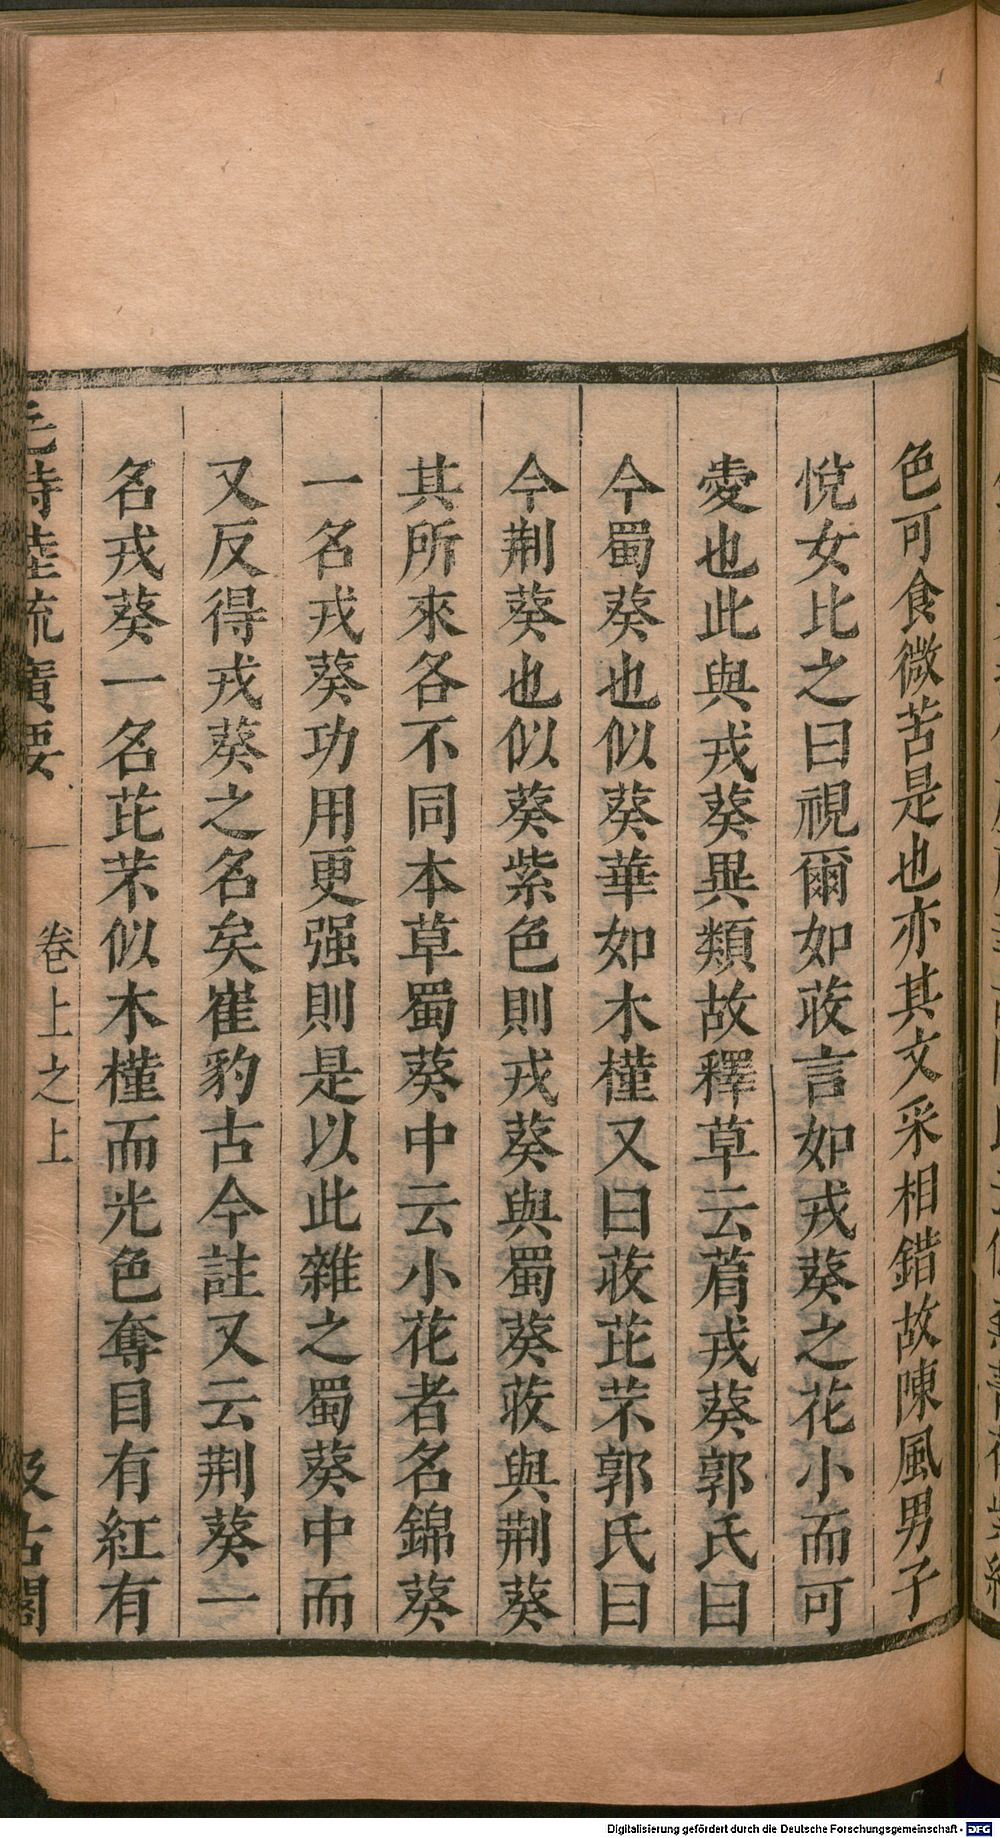 色可食微苦是也亦其文采相錯故陳風男子
悅女比之曰視爾如荍言如戎葵之花小而可
愛也此與戎葵異類故釋草云菺戎葵郭氏曰
今蜀葵也似葵華如木槿又曰荍芘芣郭氏曰
今荆葵也似葵紫色則戎葵與蜀葵荍與荆葵
其所來各不同本草蜀葵中云小花者名錦葵
一名戎葵功用更强則是以此雜之蜀葵中而
又反得戎葵之名矣崔豹古今註又云荆葵一
名戎葵一名芘芣似木槿而光色奪目有紅有
毛詩陸疏廣要
卷上之上
汲古閣
Digitalisierung gefördert durch die Deutsche Forschungsgemeinschaft - DFG